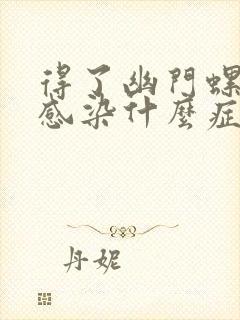 得了幽門螺
感染什麼症
丹妮